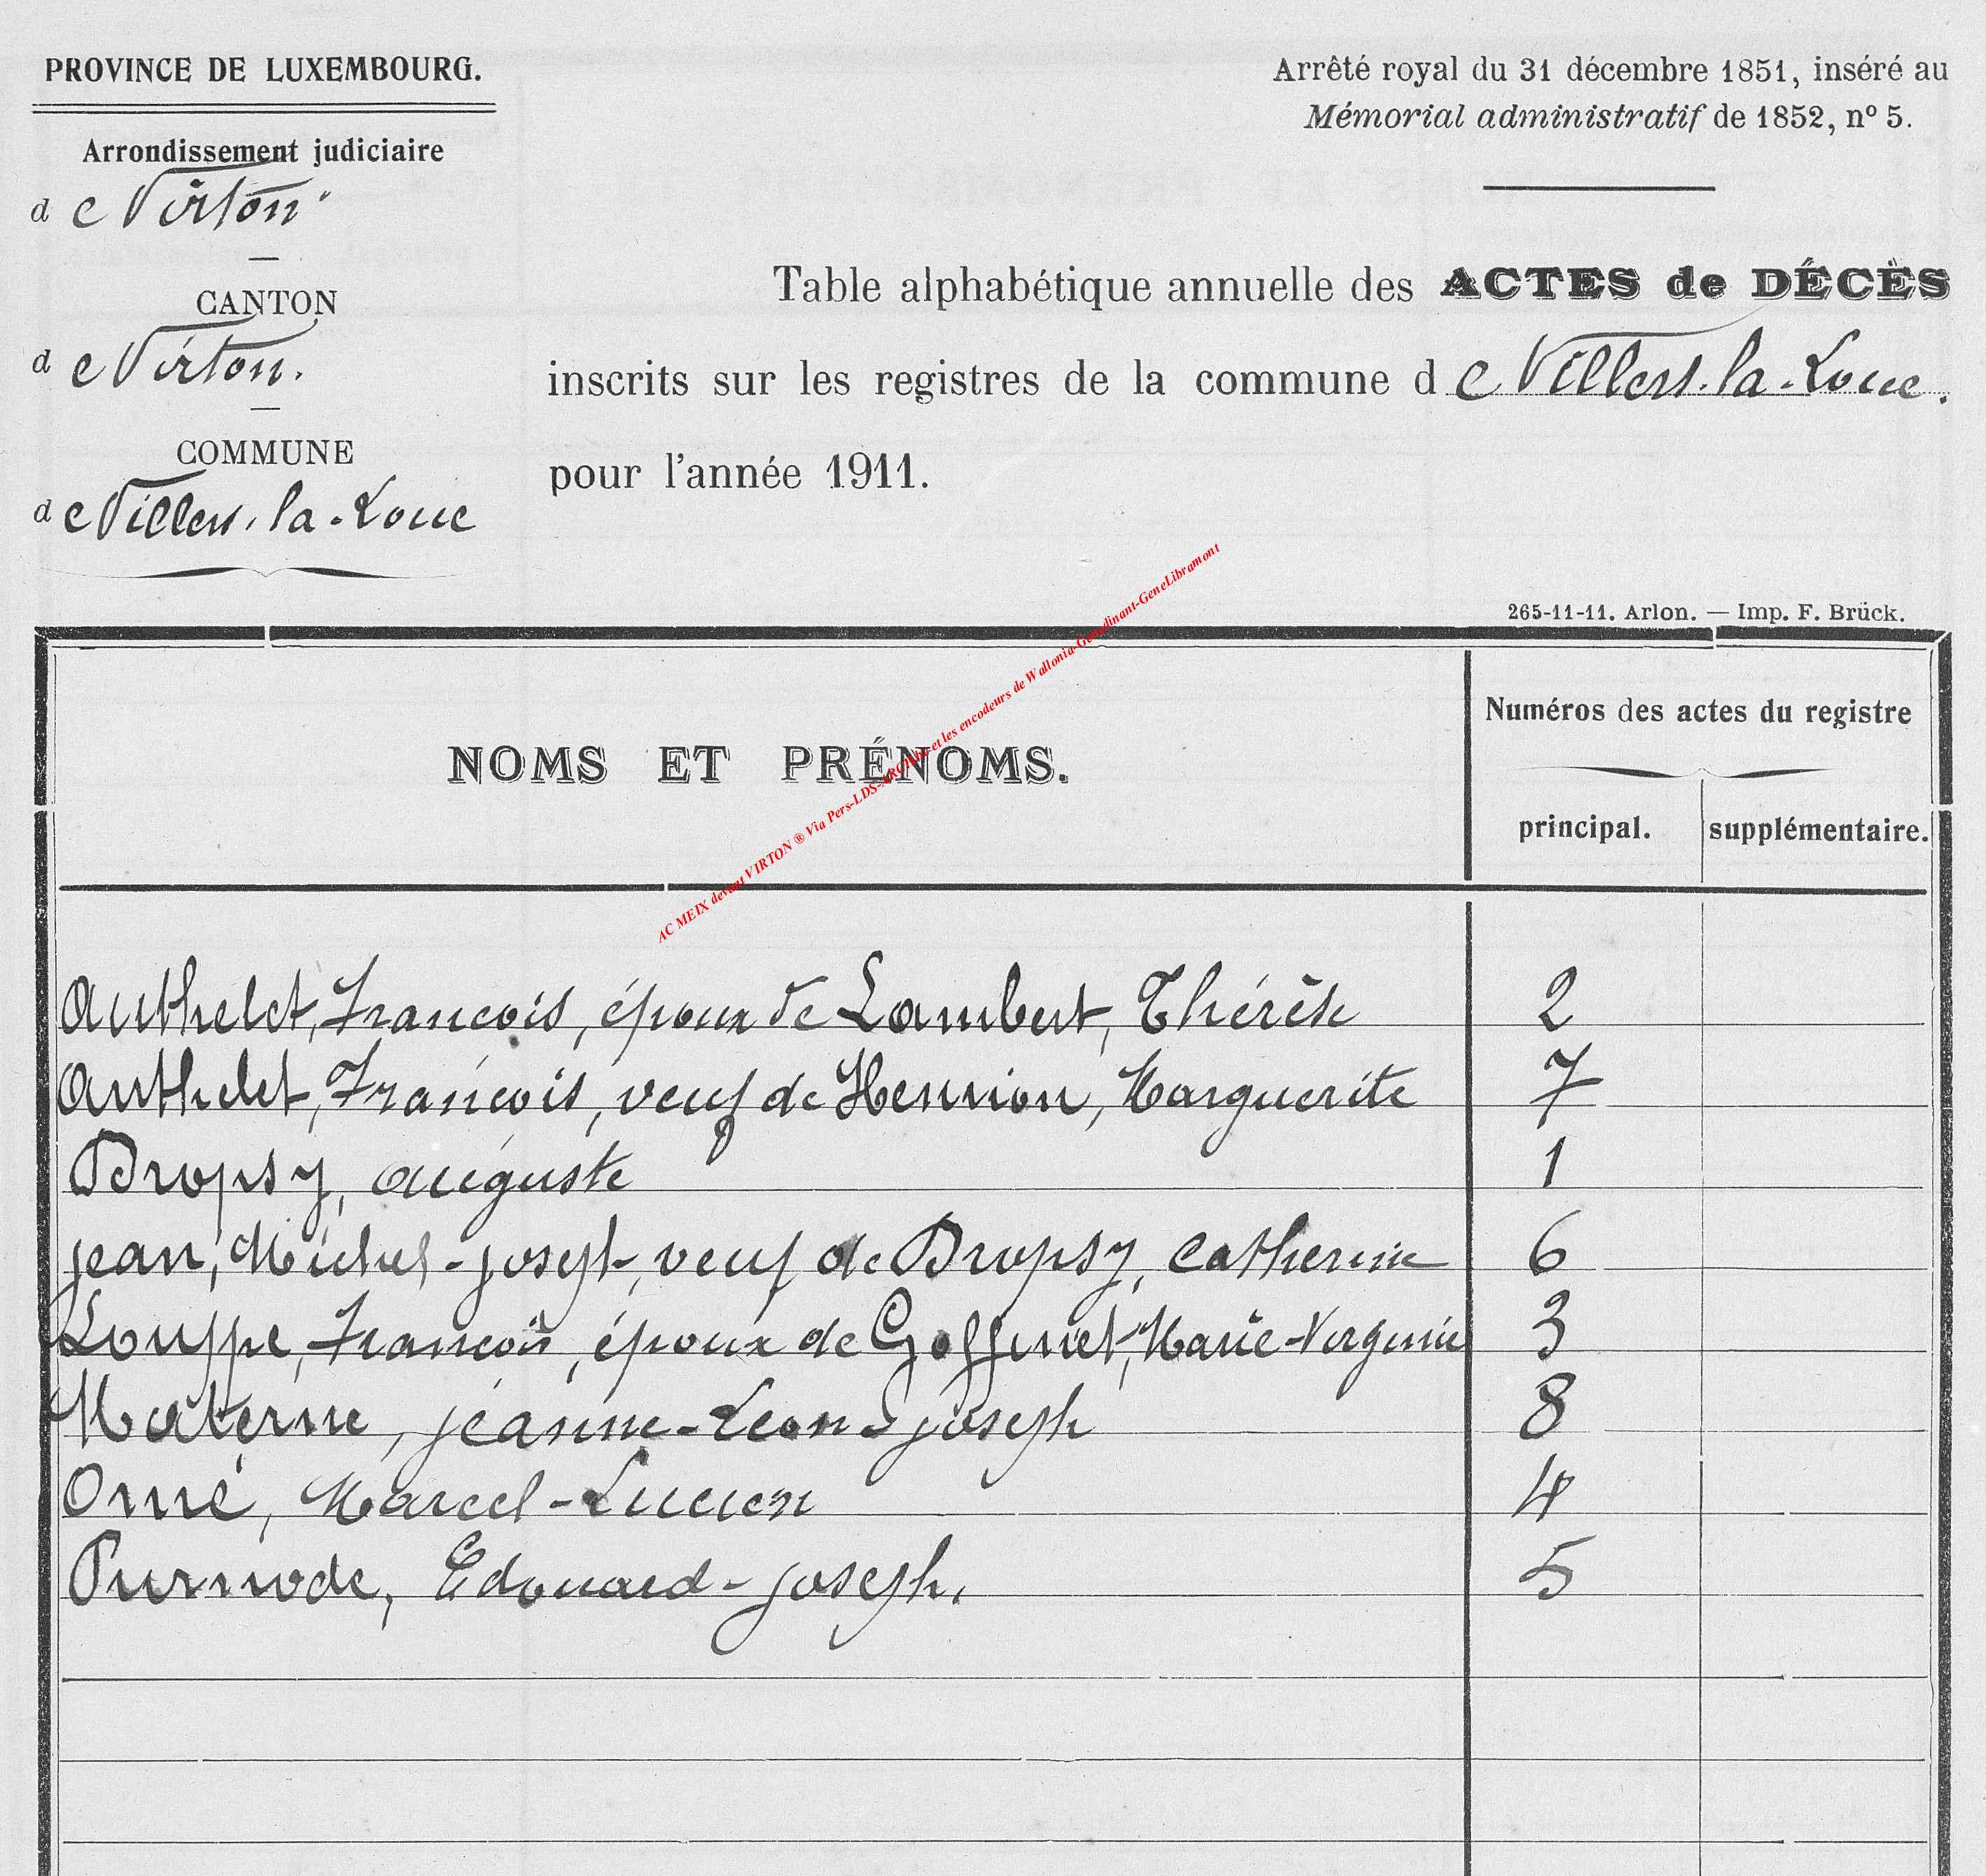 PROVINCE DE LUXEMBOURG.
Arrondissement judiciaire
de Virton
CANTON
de Virton.
COMMUNE
de Villers-la-Loue
Arrêté royal du 31 décembre 1851, inséré au
Mémorial administratif de 1852, nº 5.
Table alphabétique annuelle des ACTES de DÉCÈS
inscrits sur les registres de la commune de Villers-la-Loue.
pour l'année 1911.
265-11-11. Arlon. — Imp. F. Brück.
AC MEIX devant VIRTON ® Via Pers-LDS-ARCHbe et les encodeurs de Wallonia-Genedinant-GeneLibramont
NOMS ET PRÉNOMS.
Numéros des actes du registre
principal. supplémentaire.
Authelet, François, époux de Lambert, Thérèse 2
Authelet, François, veuf de Hennion, Marguerite 7
Dropsy, Auguste 1
Jean, Michel-Joseph, veuf de Dropsy, Catherine 6
Louppe, François, époux de Goffinet, Marie-Virginie 3
Materne, Jeanne-Léon-Joseph 8
Omé, Marcel-Lucien 4
Purnode, Edouard-Joseph. 5